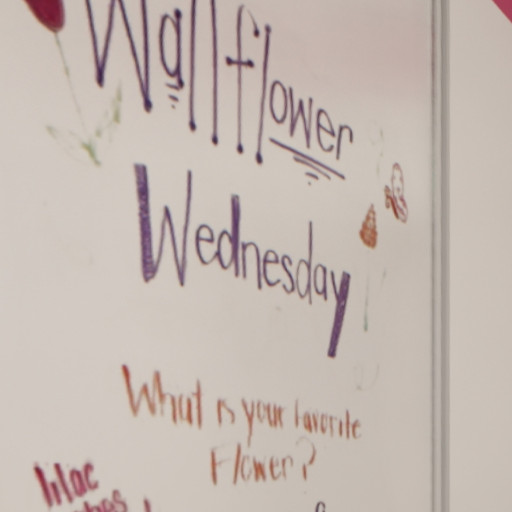 Wallflower
Wednesday
What is your favorite
Flower?
lilac